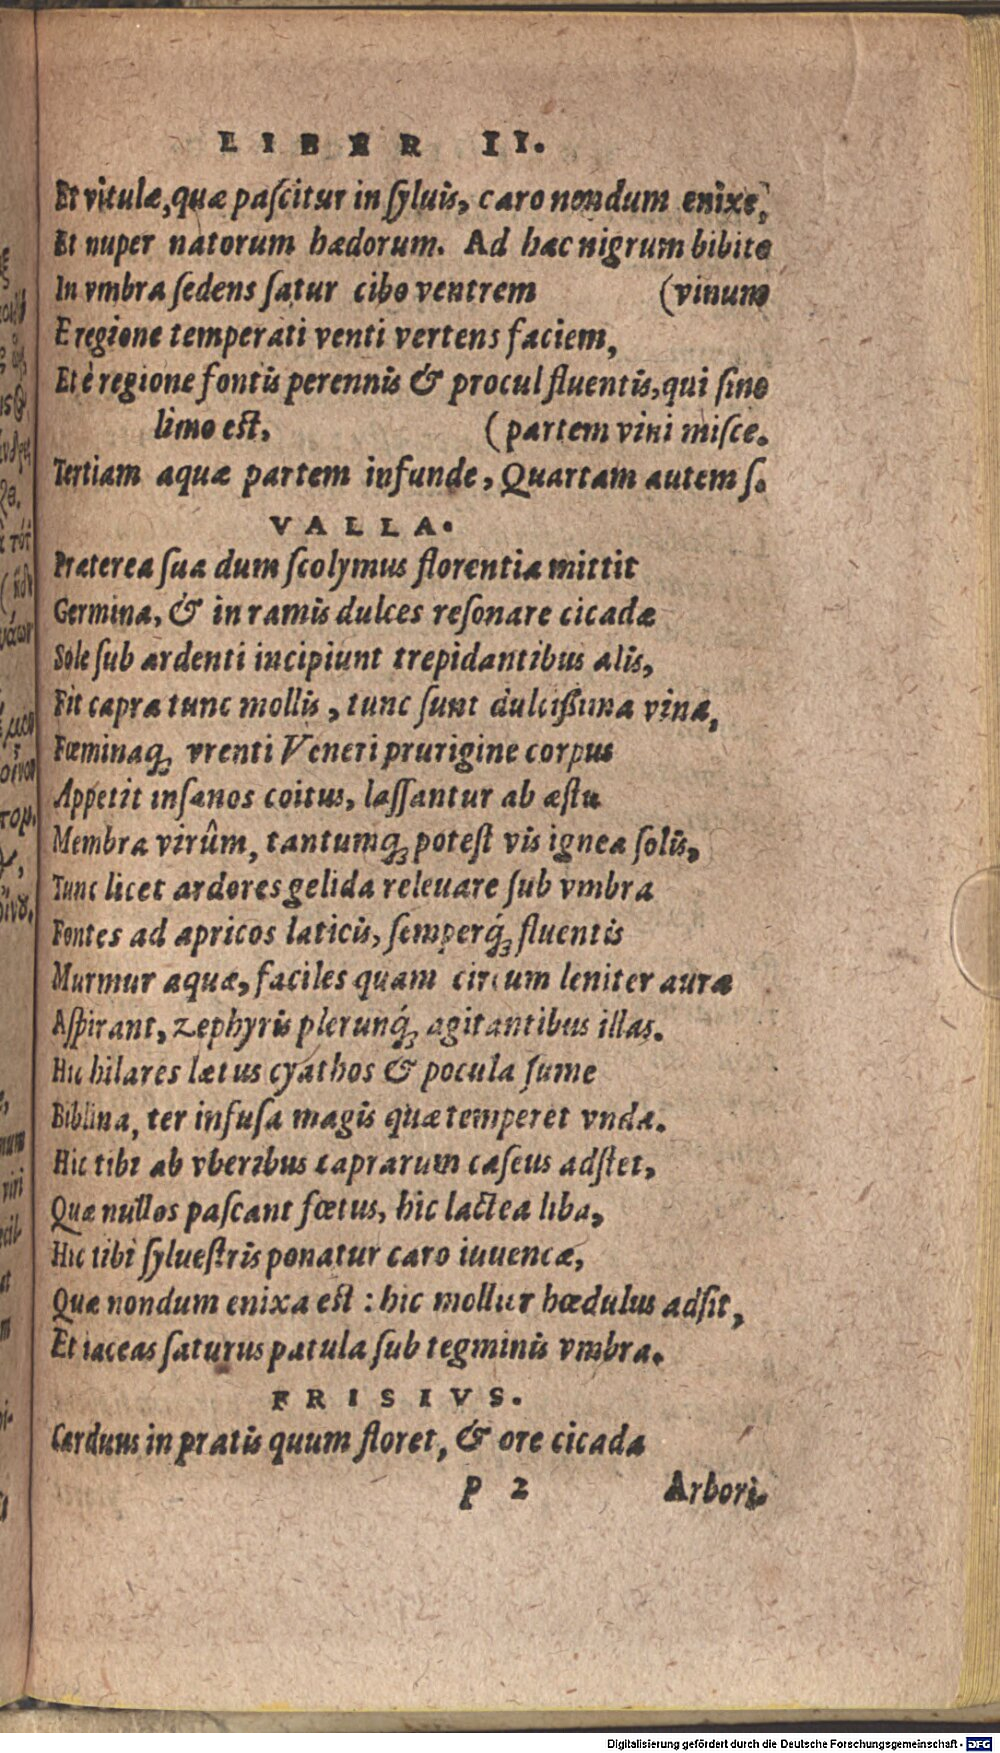 LIBER II.
Et vitulæ, quæ pascitur in syluis, caro nondum enixe,
Et nuper natorum hædorum. Ad hæc nigrum bibito
In vmbra sedens satur cibo ventrem (vinum
E regione temperati venti vertens faciem,
Et è regione fontis perennis & procul fluentis, qui sine
limo est. (partem vini misce.
Tertiam aquæ partem infunde, Quartam autem s.
VALLA.
Præterea sua dum scolymus florentia mittit
Germina, & in ramis dulces resonare cicadæ
Sole sub ardenti incipiunt trepidantibus alis,
Fit capra tunc mollis, tunc sunt dulcißima vina,
Fœminaq; vrenti Veneri prurigine corpus
Appetit insanos coitus, lassantur ab æstu
Membra virûm, tantumq; potest vis ignea solis,
Tunc licet ardores gelida releuare sub vmbra
Fontes ad apricos laticis, semperq́; fluentis
Murmur aquæ, faciles quam circum leniter auræ
Aspirant, zephyris plerunq́; agitantibus illas.
Hic hilares lætus cyathos & pocula sume
Biblina, ter infusa magis quæ temperet vnda.
Hic tibi ab vberibus caprarum caseus adstet,
Quæ nullos pascant fœtus, hic lactea liba,
Hic tibi syluestris ponatur caro iuuencæ,
Quæ nondum enixa est : hic mollur hœdulus adsit,
Et iaceas saturus patula sub tegminis vmbra.
FRISIVS.
Carduus in pratis quum floret, & ore cicada
p 2 Arbori-
Digitalisierung gefördert durch die Deutsche Forschungsgemeinschaft - DFG